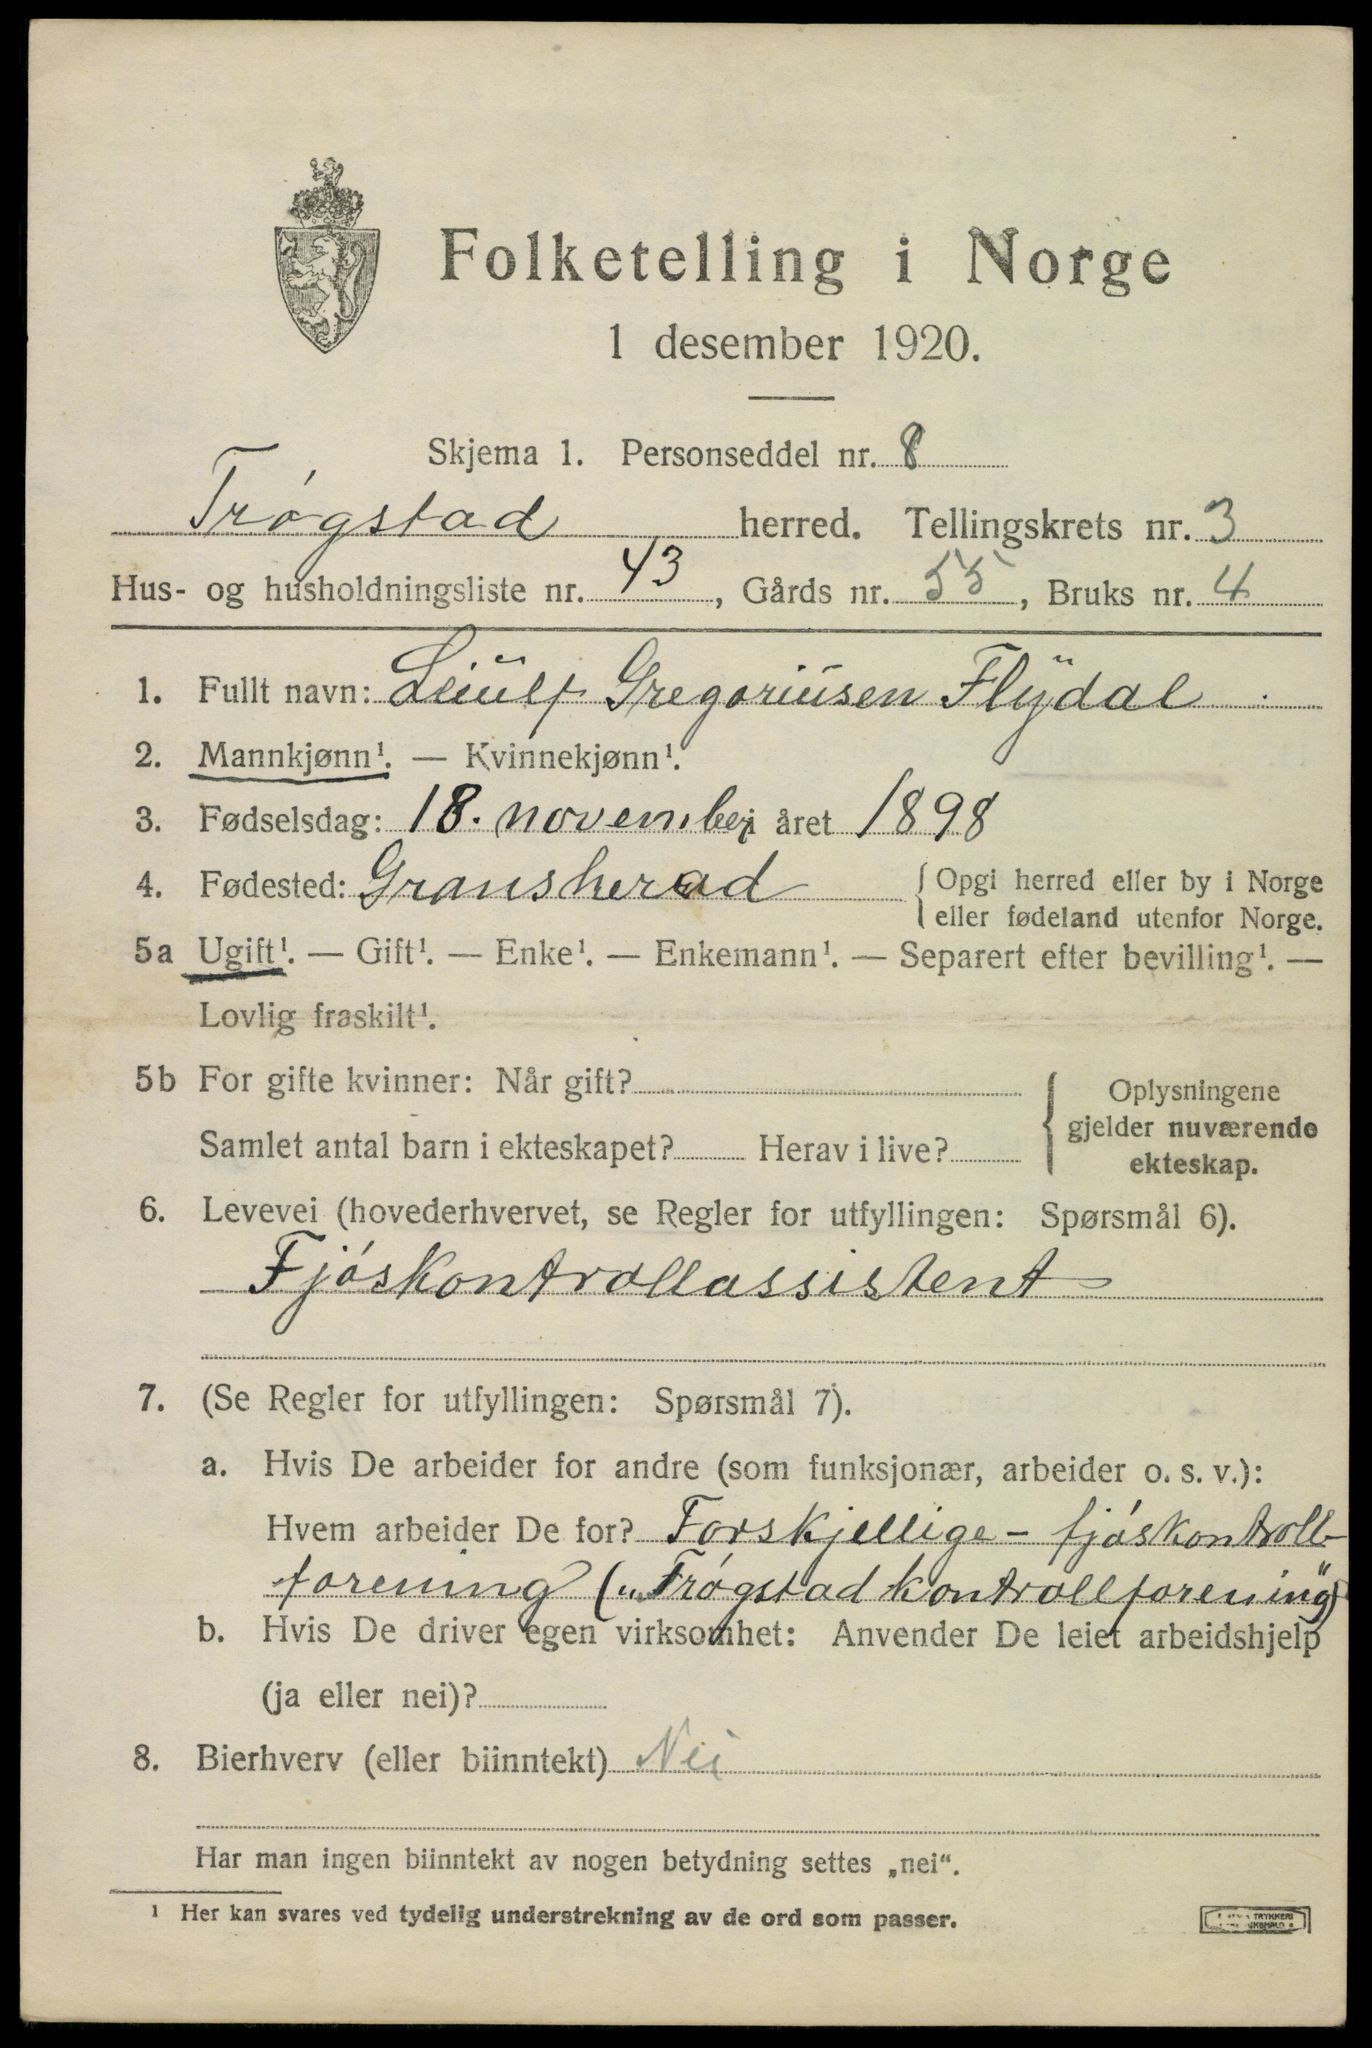 Folketelling i Norge
1 desember 1920.
Skjema 1. Personseddel nr. 8
Trøgstad herred. Tellingskrets nr. 3
Hus- og husholdningsliste nr. 43, Gårds nr. 55, Bruks nr. 4
1. Fullt navn: Leiulf Gregoriusen Flydal
2. Mannkjønn¹. — Kvinnekjønn¹.
3. Fødselsdag: 18. november i året 1898
4. Fødested: Gransherad {Opgi herred eller by i Norge
eller fødeland utenfor Norge.
5a Ugift¹. — Gift¹. — Enke¹. — Enkemann¹. — Separert efter bevilling¹. —
Lovlig fraskilt¹.
5b For gifte kvinner: Når gift? {Oplysningene
gjelder nuværende
Samlet antal barn i ekteskapet? Herav i live?
ekteskap.
6. Levevei (hovederhvervet, se Regler for utfyllingen: Spørsmål 6).
Fjóskontrollassistent
7. (Se Regler for utfyllingen: Spørsmål 7).
a. Hvis De arbeider for andre (som funksjonær, arbeider o. s. v.):
Hvem arbeider De for? Forskjellige – fjóskontroll-
forening („Trøgstad kontrollforening")
b. Hvis De driver egen virksomhet: Anvender De leiet arbeidshjelp
(ja eller nei)?
8. Bierhverv (eller biinntekt) Nei
Har man ingen biinntekt av nogen betydning settes „nei“.
¹ Her kan svares ved tydelig understrekning av de ord som passer.